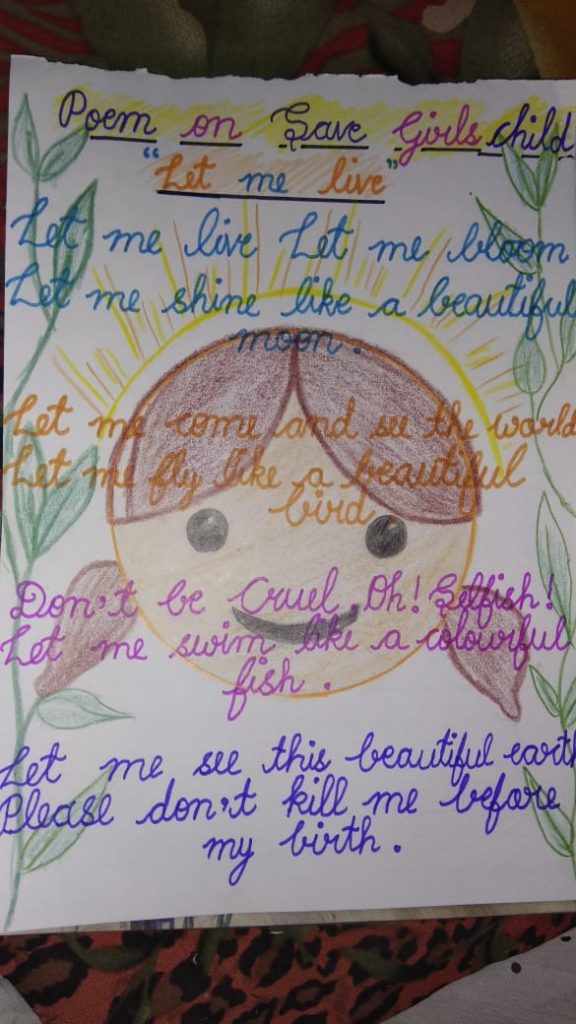 Poem on Save Girls child
"Let me live"
Let me live Let me bloom
Let me shine like a beautiful
moon.
Let me come and see the world
Let me fly like a beautiful
bird
Don't be Cruel. Oh! Selfish!
Let me swim like a colourful
fish.
Let me see this beautiful earth
Please don't kill me before
my birth.